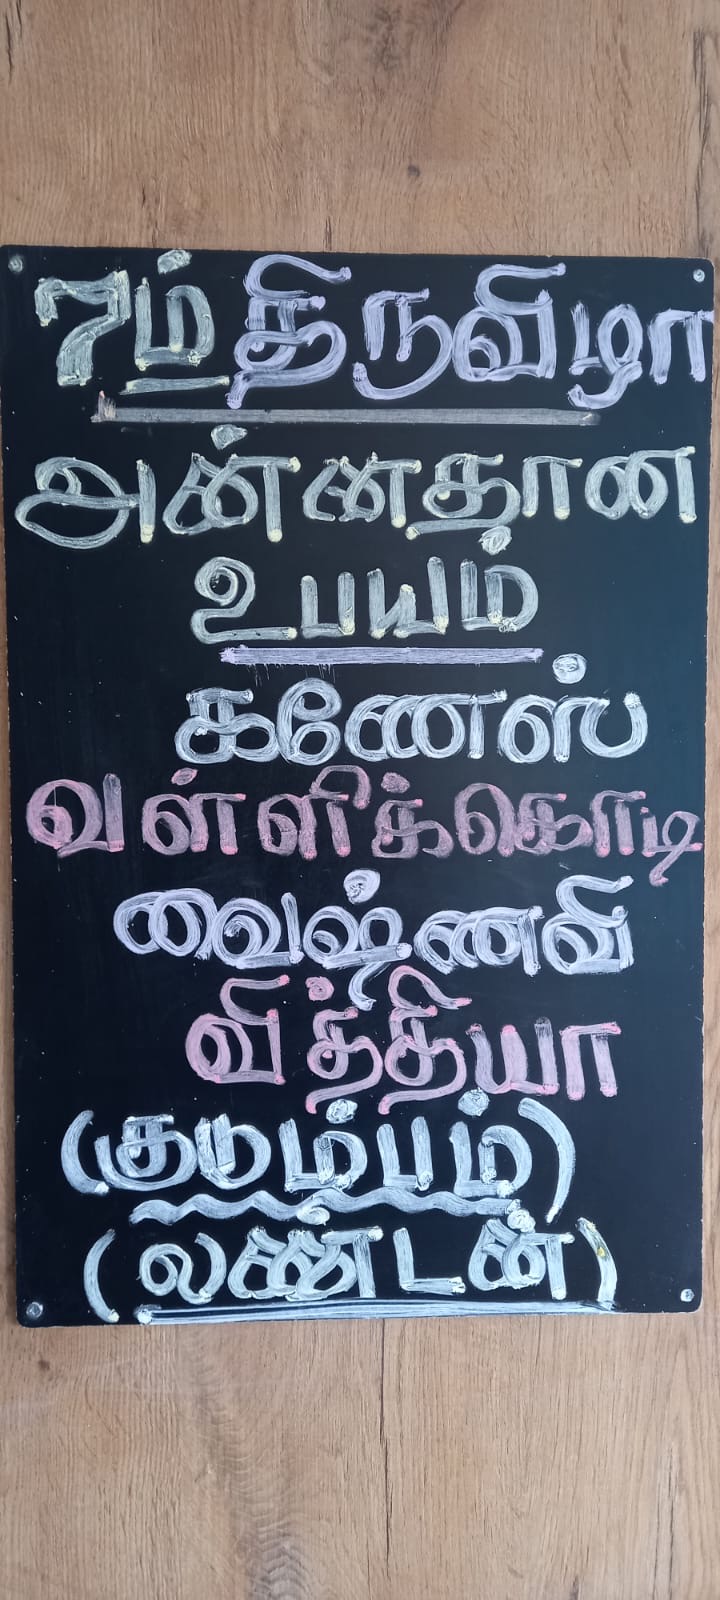 7ம் திருவிழா
அன்னதான
உபயம்
கணேஸ்
வள்ளிக்கொடி
வைஷ்ணவி
வித்தியா
(குடும்பம்)
(லண்டன்)